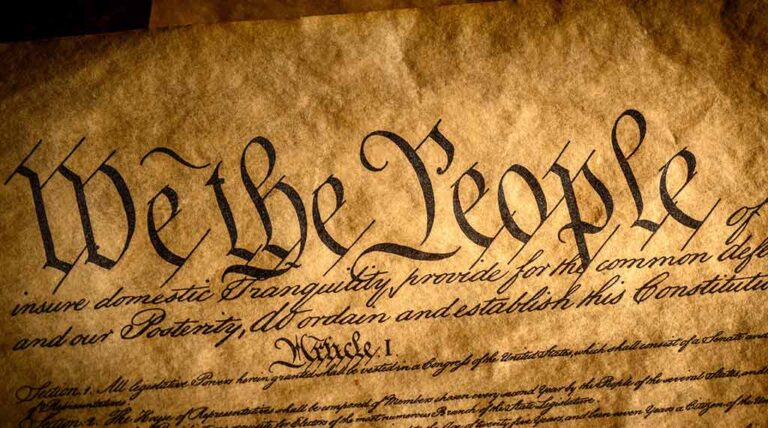 We the People of
insure domestic Tranquility, provide for the common defe
and our Posterity, do ordain and establish this Constitutio
Article. I.
Section. 1. All legislative Powers herein granted shall be vested in a Congress of the United States, which shall consist of a Senate and
of Representatives.
Section. 2. The House of Representatives shall be composed of Members chosen every second Year by the People of the several States, and
for Electors of the most numerous Branch of the State Legislature.
of twenty five Years, and been seven Years a Citizen of the